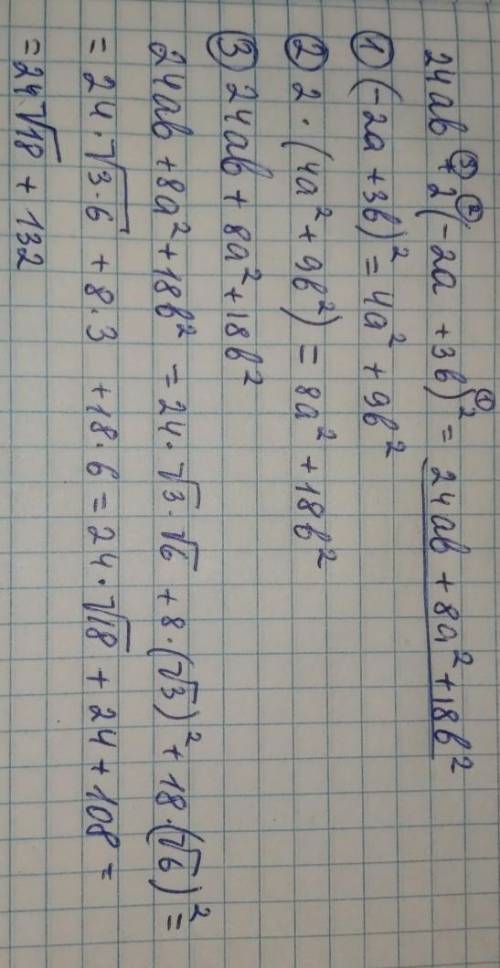 24ab +③ 2②(-2a + 3b)²① = 24ab + 8a² + 18b²
① (-2a + 3b)² = 4a² + 9b²
② 2 · (4a² + 9b²) = 8a² + 18b²
③ 24ab + 8a² + 18b²
24ab + 8a² + 18b² = 24 · √3 · √6 + 8 · (√3)² + 18 · (√6)² =
= 24 · √3·6 + 8 · 3 + 18 · 6 = 24 · √18 + 24 + 108 =
= 24√18 + 132